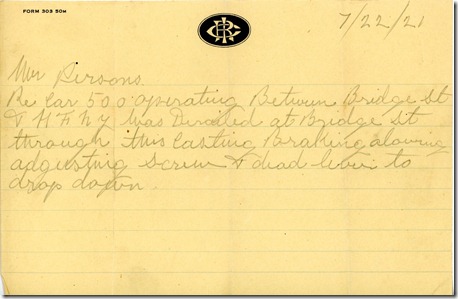 FORM 303 50M
7/22/21
Mr Persons.
Re Car 500 operating Between Bridge St
& was Derailed at Bridge St
through this Casting Braking alowing
adjusting screw & dead lever to
drop down.